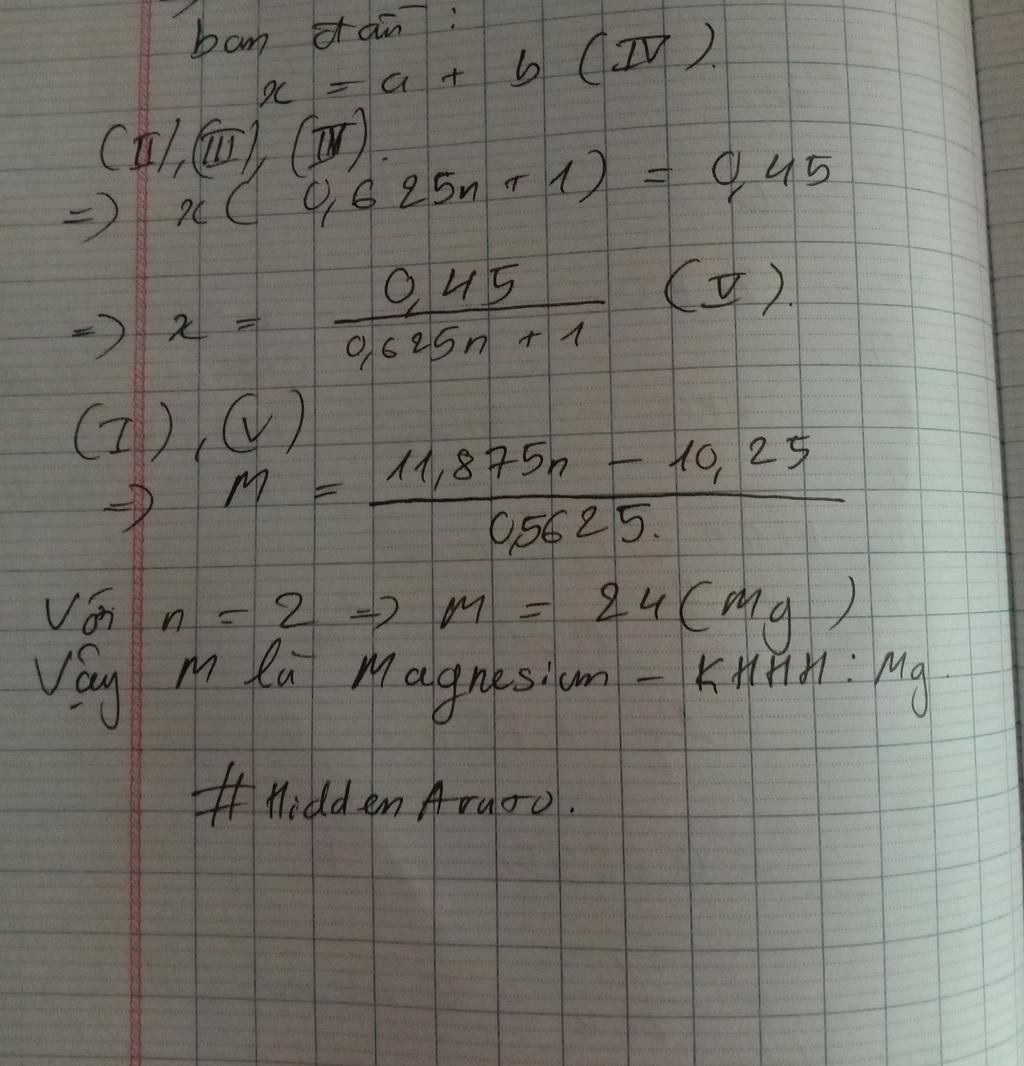 ban đầu :
x = a + b (IV).
(II), (III), (IV).
=> x( 0,625n + 1) = 0,45
=> x = 0,45 / 0,625n + 1 (V).
(I), (V)
=> M = 11,875n - 10,25 / 0,5625.
Với n = 2 => M = 24 (Mg)
Vậy M là Magnesium - KHHH: Mg.